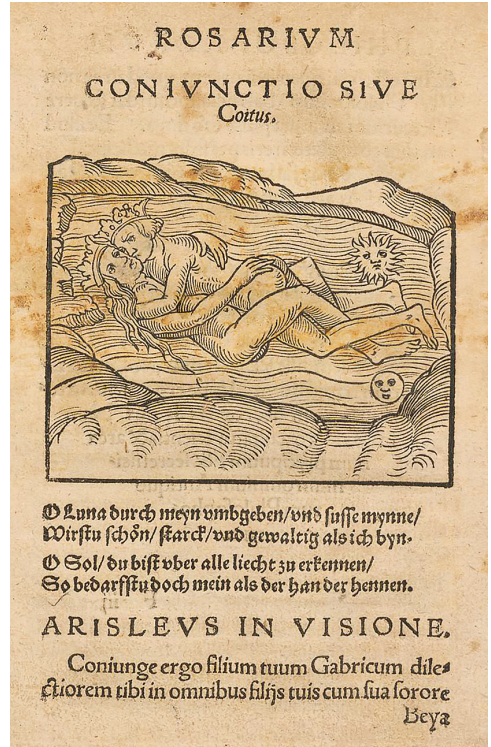 ROSARIVM
CONIVNCTIO SIVE
Coitus.
O Luna durch meyn vmbgeben/vnd susse mynne/
Wirstu schön/starck/vnd gewaltig als ich byn.
O Sol/du bist vber alle liecht zu erkennen/
So bedarfstu doch mein als der han der hennen.
ARISLEVS IN VISIONE.
Coniunge ergo filium tuum Gabricum dile⸗
ctiorem tibi in omnibus filijs tuis cum sua sorore
Beya